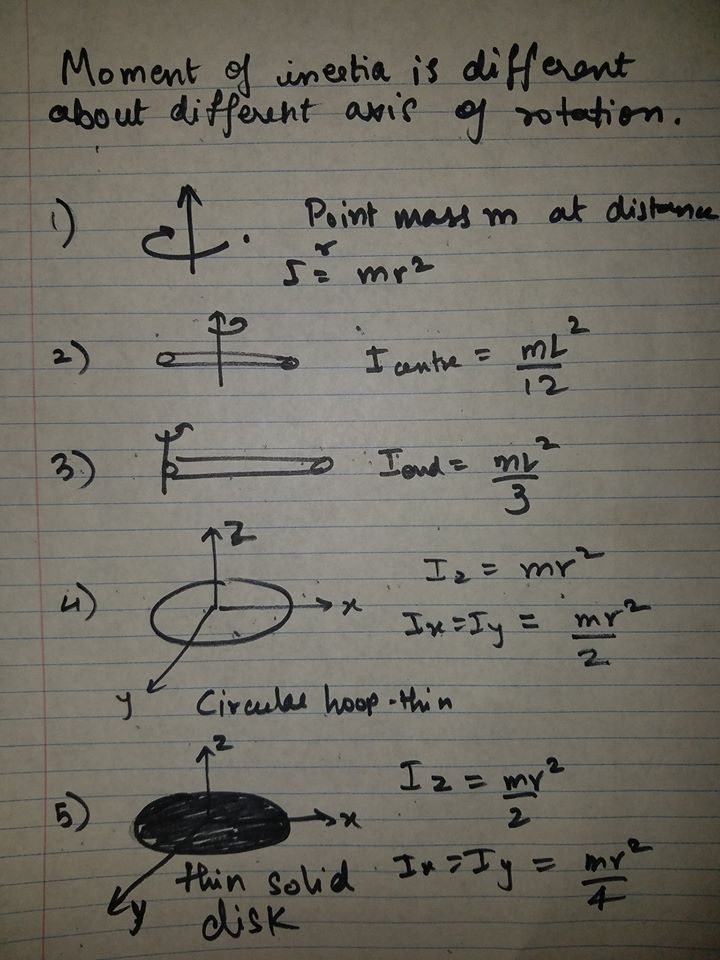 Moment of inertia is different
about different axis of rotation.
1) Point mass m at distance
r
I = mr²
2) I centre = mL²/12
3) I end = mL²/3
Z
4) x
y
I z = mr²
Ix = Iy = mr²/2
Circular hoop - thin
z
5) x
y
I z = mr²/2
thin solid
disk
Ix = Iy = mr²/4